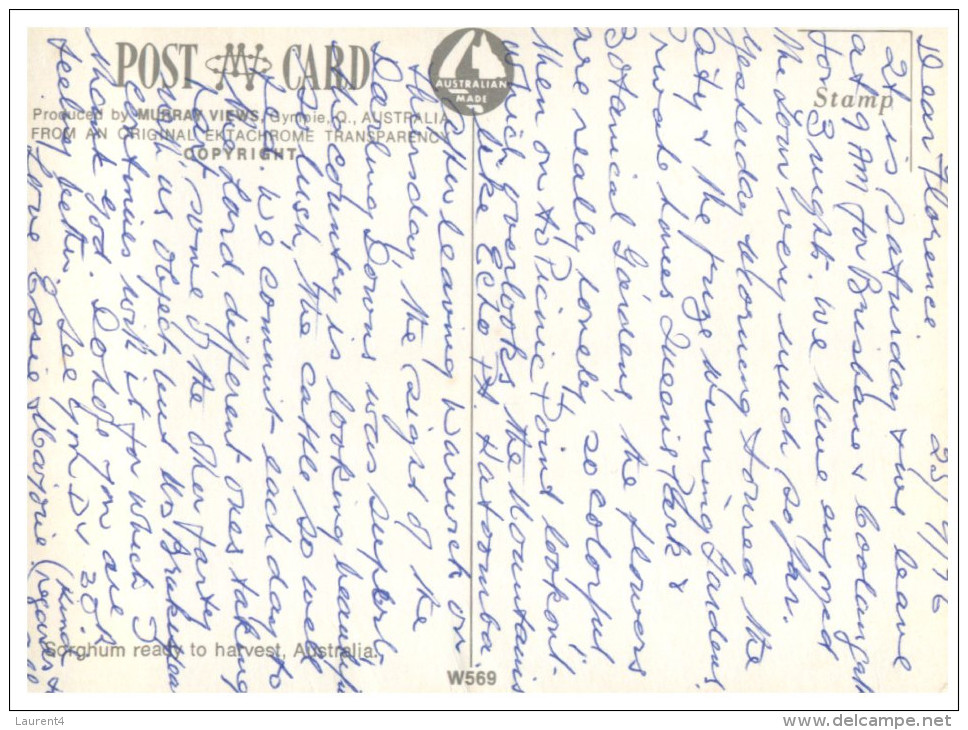 POST CARD
AUSTRALIAN
MADE
Stamp
Produced by MURRAY VIEWS, Gympie, Q., AUSTRALIA
FROM AN ORIGINAL EKTACHROME TRANSPARENCY
COPYRIGHT
Sorghum ready to harvest, Australia.
W569
25/9/76
Dear Florence
It is Saturday & we leave
at 9 AM for Brisbane & Coolangatta
for 3 nights. We have enjoyed
the tour very much so far.
Yesterday Morning toured the
City & the prize winning Gardens.
Private homes Queens Park &
Botanical Gardens, the flowers
are really lovely, so colorful
then on to Picnic Point lookout.
Which overlooks the Mountains
like Echo Pt. Katoomba.
After leaving Warwick on
Thursday, the sight of the
Darling Downs was superb.
the country is looking beautiful
& lush, the cattle so well
fed. We commit each day to
the Lord, different ones taking
part, some of the other party
with us object but
continues with it for which I
thank God. Do hope you are
feeling better. See you D.V. 30th
Love Essie & Marjorie (Kind
Regards
Laurent4
www.delcampe.net